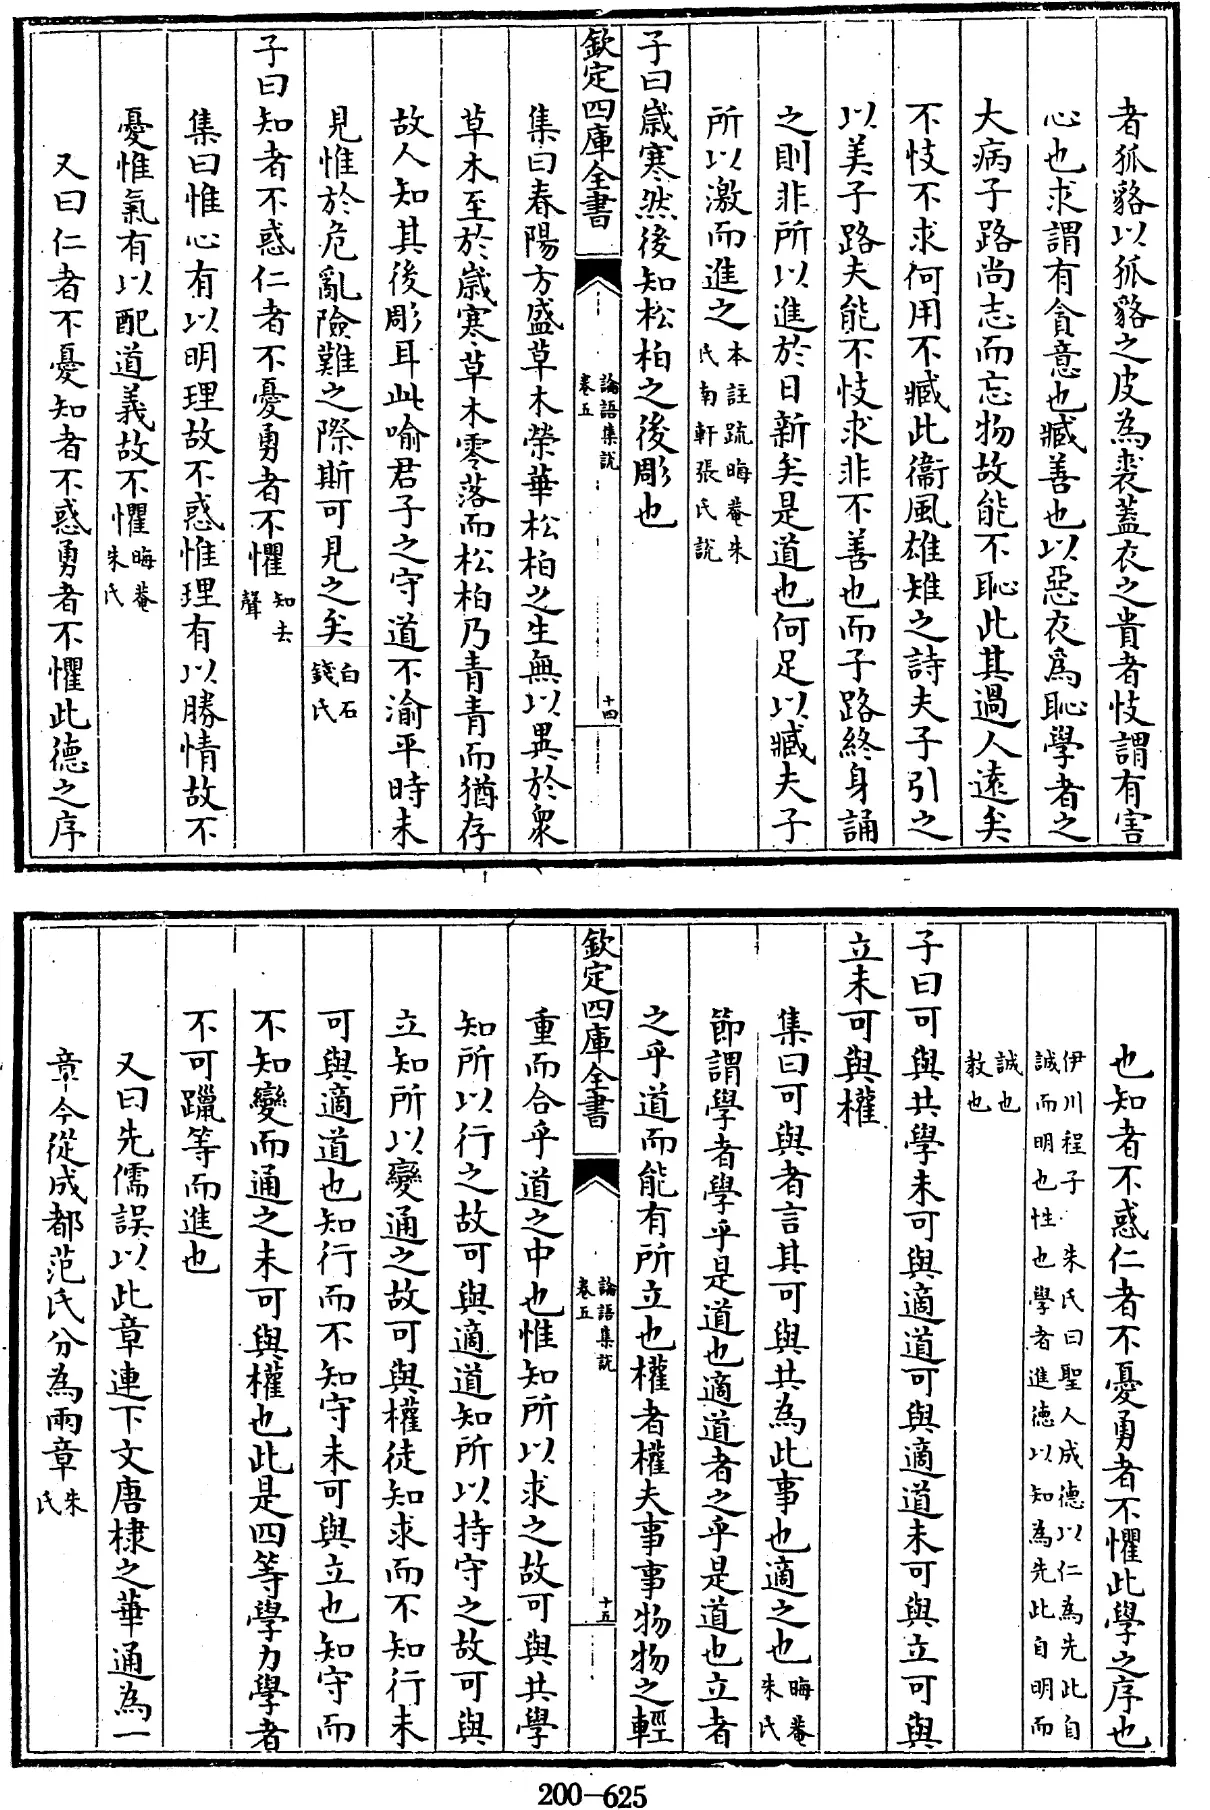 者狐貉以狐貉之皮為裘蓋衣之貴者忮謂有害
心也求謂有貪意也臧善也以惡衣爲恥學者之
大病子路尚志而忘物故能不恥此其過人遠矣
不忮不求何用不臧此衞風雄雉之詩夫子引之
以美子路夫能不忮求非不善也而子路終身誦
之則非所以進於日新矣是道也何足以臧夫子
所以激而進之本註疏晦菴朱氏南軒張氏説
子曰歲寒然後知松柏之後彫也
欽定四庫全書
論語集説
卷五
十四
集曰春陽方盛草木榮華松柏之生無以異於衆
草木至於歲寒草木零落而松柏乃青青而猶存
故人知其後彫耳此喻君子之守道不渝平時未
見惟於危亂險難之際斯可見之矣白石錢氏
子曰知者不惑仁者不憂勇者不懼知去聲
集曰惟心有以明理故不惑惟理有以勝情故不
憂惟氣有以配道義故不懼晦菴朱氏
又曰仁者不憂知者不惑勇者不懼此德之序
也知者不惑仁者不憂勇者不懼此學之序也
伊川程子 朱氏曰聖人成德以仁為先此自
誠而明也性也學者進德以知為先此自明而
誠也
教也
子曰可與共學未可與適道可與適道未可與立可與
立未可與權
集曰可與者言其可與共為此事也適之也晦菴朱氏
節謂學者學乎是道也適道者之乎是道也立者
之乎道而能有所立也權者權夫事事物物之輕
欽定四庫全書
論語集説
卷五
十五
重而合乎道之中也惟知所以求之故可與共學
知所以行之故可與適道知所以持守之故可與
立知所以變通之故可與權徒知求而不知行未
可與適道也知行而不知守未可與立也知守而
不知變而通之未可與權也此是四等學力學者
不可躐等而進也
又曰先儒誤以此章連下文唐棣之華通為一
章今從成都范氏分為兩章朱氏
200-625